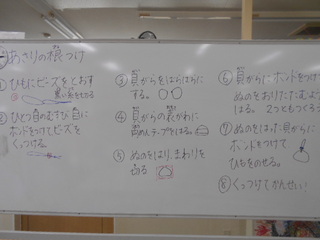 あさりの根つけ
① ひもにビーズをとおす
② ひとつ目のむすび目に
ボンドをつけてビーズを
くっつける。
③ 貝がらをばらばらに
する。
④ 貝がらの表がわに
両めんテープをはる。
⑤ ぬのをはり、まわりを
切る
⑥ 貝がらにボンドをつけて
ぬのをおりたたむよう
はる。2つともつくる
⑦ ぬのをはった貝がらに
ボンドをつけて
ひもをのせる。
⑧ くっつけてかんせい!